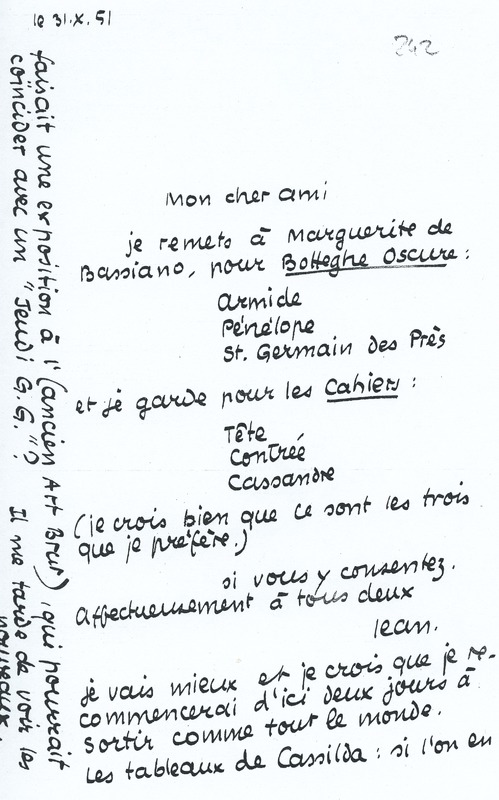 le 31.X.51
242
Mon cher ami
je remets à Marguerite de
Bassiano, pour Botteghe Oscure :
Armide
Pénélope
St. Germain des Près
et je garde pour les Cahiers :
Tête
Contrée
Cassandre
(je crois bien que ce sont les trois
que je préfère.)
si vous y consentez.
Affectueusement à tous deux
Jean.
je vais mieux et je crois que je re-
commencerai d'ici deux jours à
sortir comme tout le monde.
Les tableaux de Cassilda : si l'on en
faisait une exposition à l'(ancien Art Brut), qui pourrait
coïncider avec un "Jeudi G.G."? Il me tarde de voir les
nouveaux.